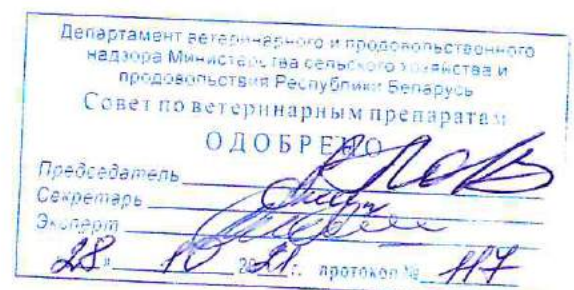 Департамент ветеринарного и продовольственного
надзора Министерства сельского хозяйства и
продовольствия Республики Беларусь
Совет по ветеринарным препаратам
ОДОБРЕНО
Председатель
Секретарь
Эксперт
28 » 10 2021г. протокол № 117